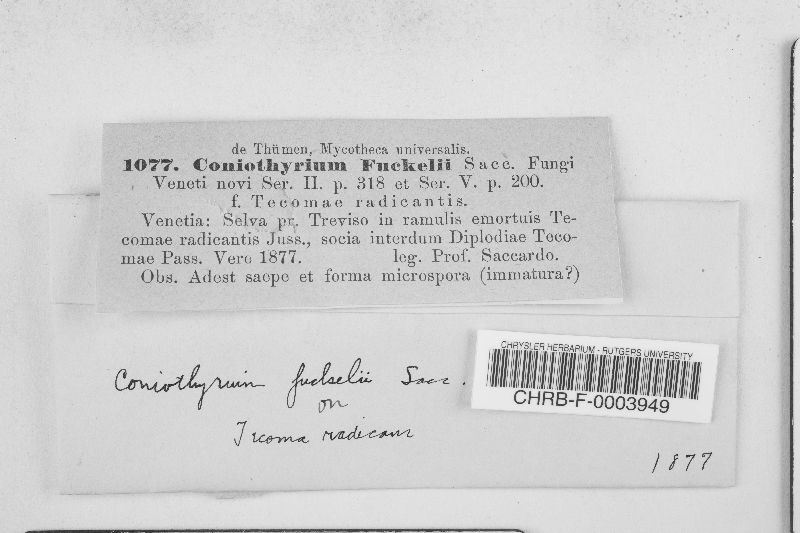 de Thümen, Mycotheca universalis.
1077. Coniothyrium Fuckelii Sacc. Fungi
Veneti novi Ser. II. p. 318 et Ser. V. p. 200.
f. Tecomae radicantis.
Venetia: Selva pr. Treviso in ramulis emortuis Te-
comae radicantis Juss., socia interdum Diplodiae Teco-
mae Pass. Vere 1877. leg. Prof. Saccardo.
Obs. Adest saepe et forma microspora (immatura?)
CHRYSLER HERBARIUM - RUTGERS UNIVERSITY
CHRB-F-0003949
Coniothyrium fuckelii Sacc.
on
Tecoma radicans
1877